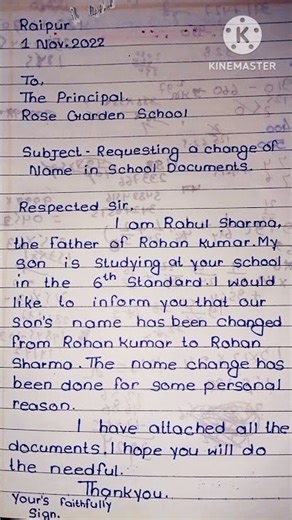 Raipur
1 Nov. 2022
KINEMASTER
To,
The Principal,
Rose Garden School
Subject - Requesting a change of
Name in School Documents.
Respected Sir,
I am Rahul Sharma,
the Father of Rohan Kumar. My
son is studying at your school
in the 6th Standard. I would
like to inform you that our
Son's name has been changed
from Rohan Kumar to Rohan
Sharma. The name change has
been done for some personal
reason.
I have attached all the
documents. I hope you will do
the needful.
Thankyou.
Your's faithfully
Sign.